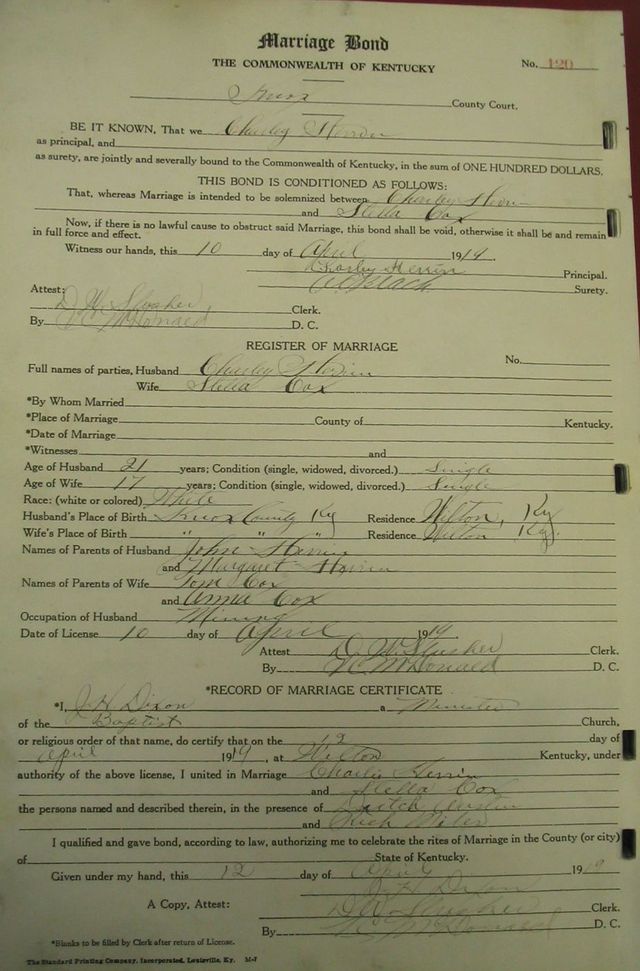 Marriage Bond
THE COMMONWEALTH OF KENTUCKY
No. 120
Knox County Court.
BE IT KNOWN, That we Charley Herrin
as principal, and
as surety, are jointly and severally bound to the Commonwealth of Kentucky, in the sum of ONE HUNDRED DOLLARS.
THIS BOND IS CONDITIONED AS FOLLOWS:
That, whereas Marriage is intended to be solemnized between Charley Herrin
and Stella Cox
Now, if there is no lawful cause to obstruct said Marriage, this bond shall be void, otherwise it shall be and remain
in full force and effect.
Witness our hands, this 10 day of April 1919.
Charley Herrin Principal.
Surety.
Attest:
D. W. Slusher Clerk.
By McDonald D. C.
REGISTER OF MARRIAGE
No.
Full names of parties, Husband Charley Herrin
Wife Stella Cox
*By Whom Married
*Place of Marriage County of Kentucky.
*Date of Marriage
*Witnesses and
Age of Husband 21 years; Condition (single, widowed, divorced.) Single
Age of Wife 17 years; Condition (single, widowed, divorced.) Single
Race: (white or colored) White
Husband's Place of Birth Knox County Ky Residence Wilton, Ky
Wife's Place of Birth " " " Residence Wilton Ky.
Names of Parents of Husband John Herrin
and Margaret Herrin
Names of Parents of Wife Tom Cox
and Anna Cox
Occupation of Husband Mining
Date of License 10 day of April 1919.
Attest D. W. Slusher Clerk.
By McDonald D. C.
*RECORD OF MARRIAGE CERTIFICATE
*I, J. H. Dixon a Minister
of the Baptist Church,
or religious order of that name, do certify that on the 12 day of
April 1919, at Wilton Kentucky, under
authority of the above license, I united in Marriage Charlie Herrin
and Stella Cox
the persons named and described therein, in the presence of Austin
and
I qualified and gave bond, according to law, authorizing me to celebrate the rites of Marriage in the County (or city)
of State of Kentucky.
Given under my hand, this 12 day of April 1919
J. H. Dixon
A Copy, Attest: D. W. Slusher Clerk.
By McDonald D. C.
*Blanks to be filled by Clerk after return of License.
The Standard Printing Company, Incorporated, Louisville, Ky. M-7